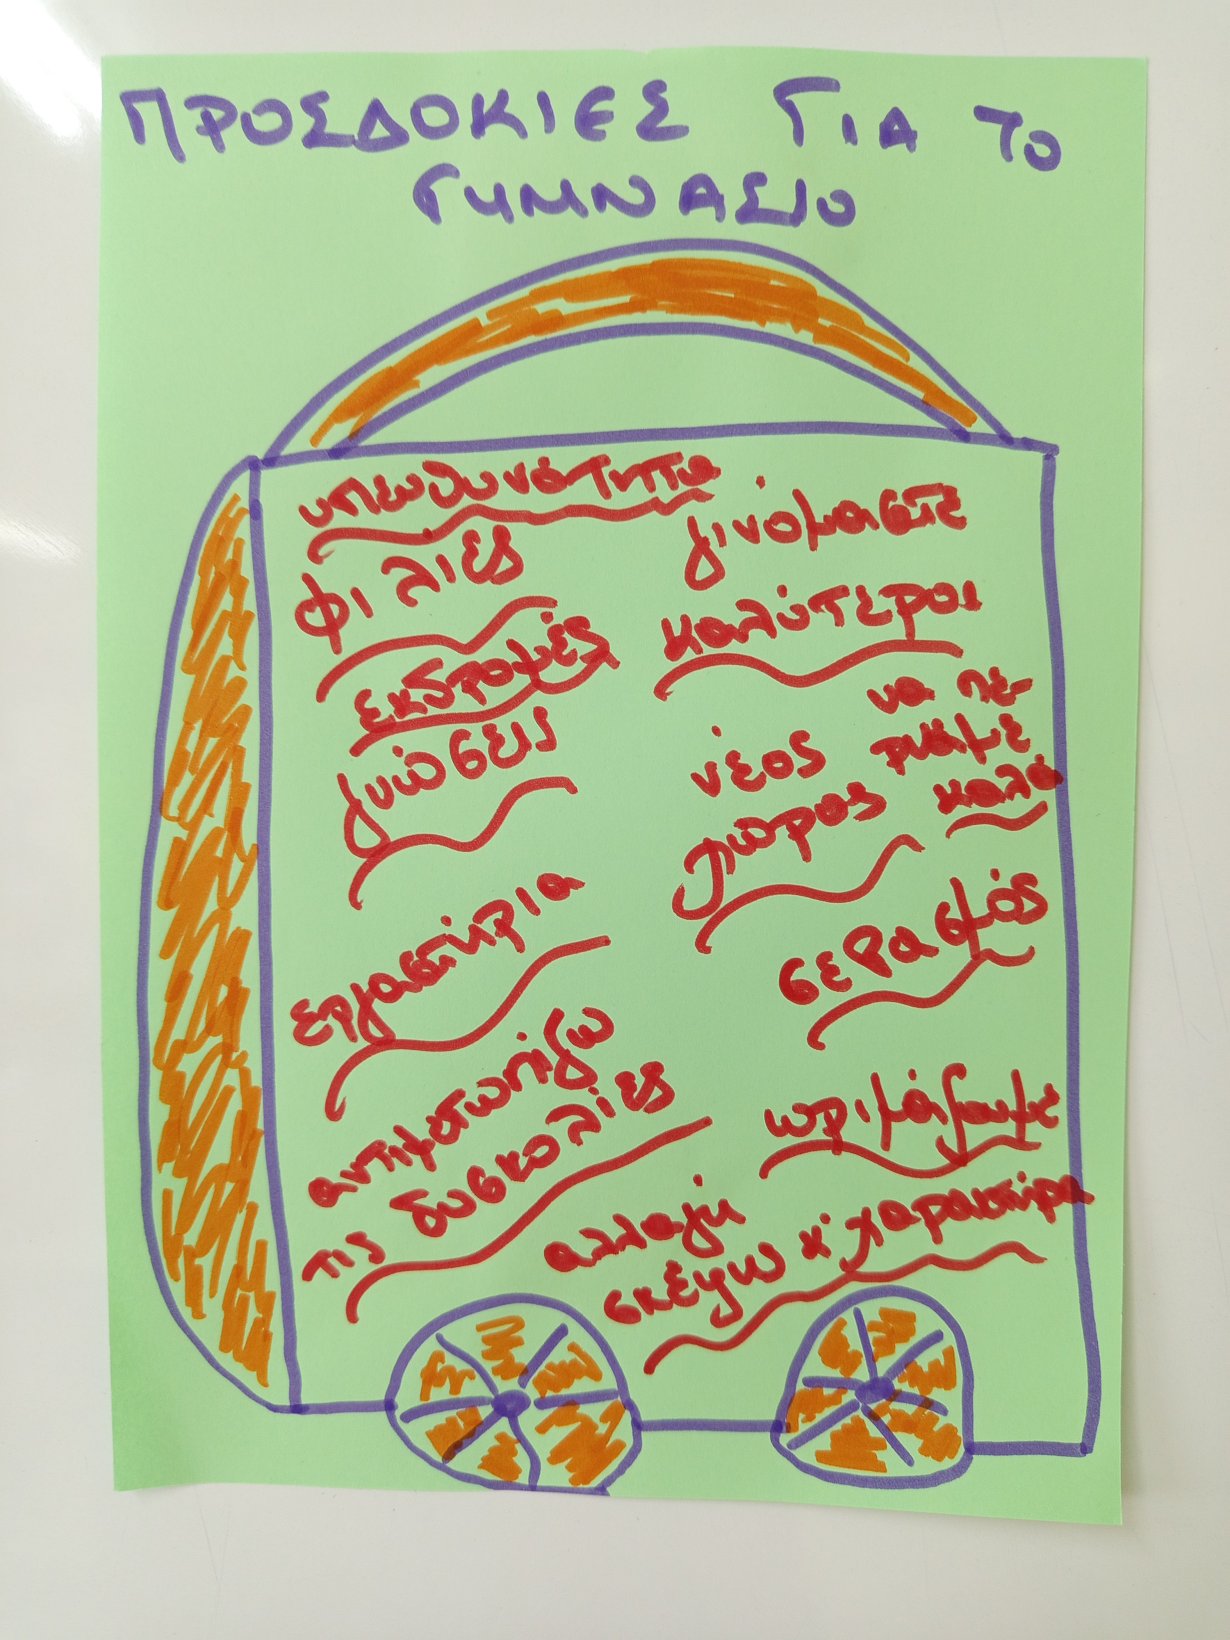 ΠΡΟΣΔΟΚΙΕΣ ΓΙΑ ΤΟ
ΓΥΜΝΑΣΙΟ
υπευθυνότητα
φιλίες
εκδρομές
γνώσεις
εργαστήρια
αντιμετωπίζω
τις δυσκολίες
γινόμαστε
καλύτεροι
νέος
χώρος
να πε-
ρνάμε
καλά
σεβασμός
ωριμάζουμε
αλλαγή
σκέψω κ' χαρακτήρα